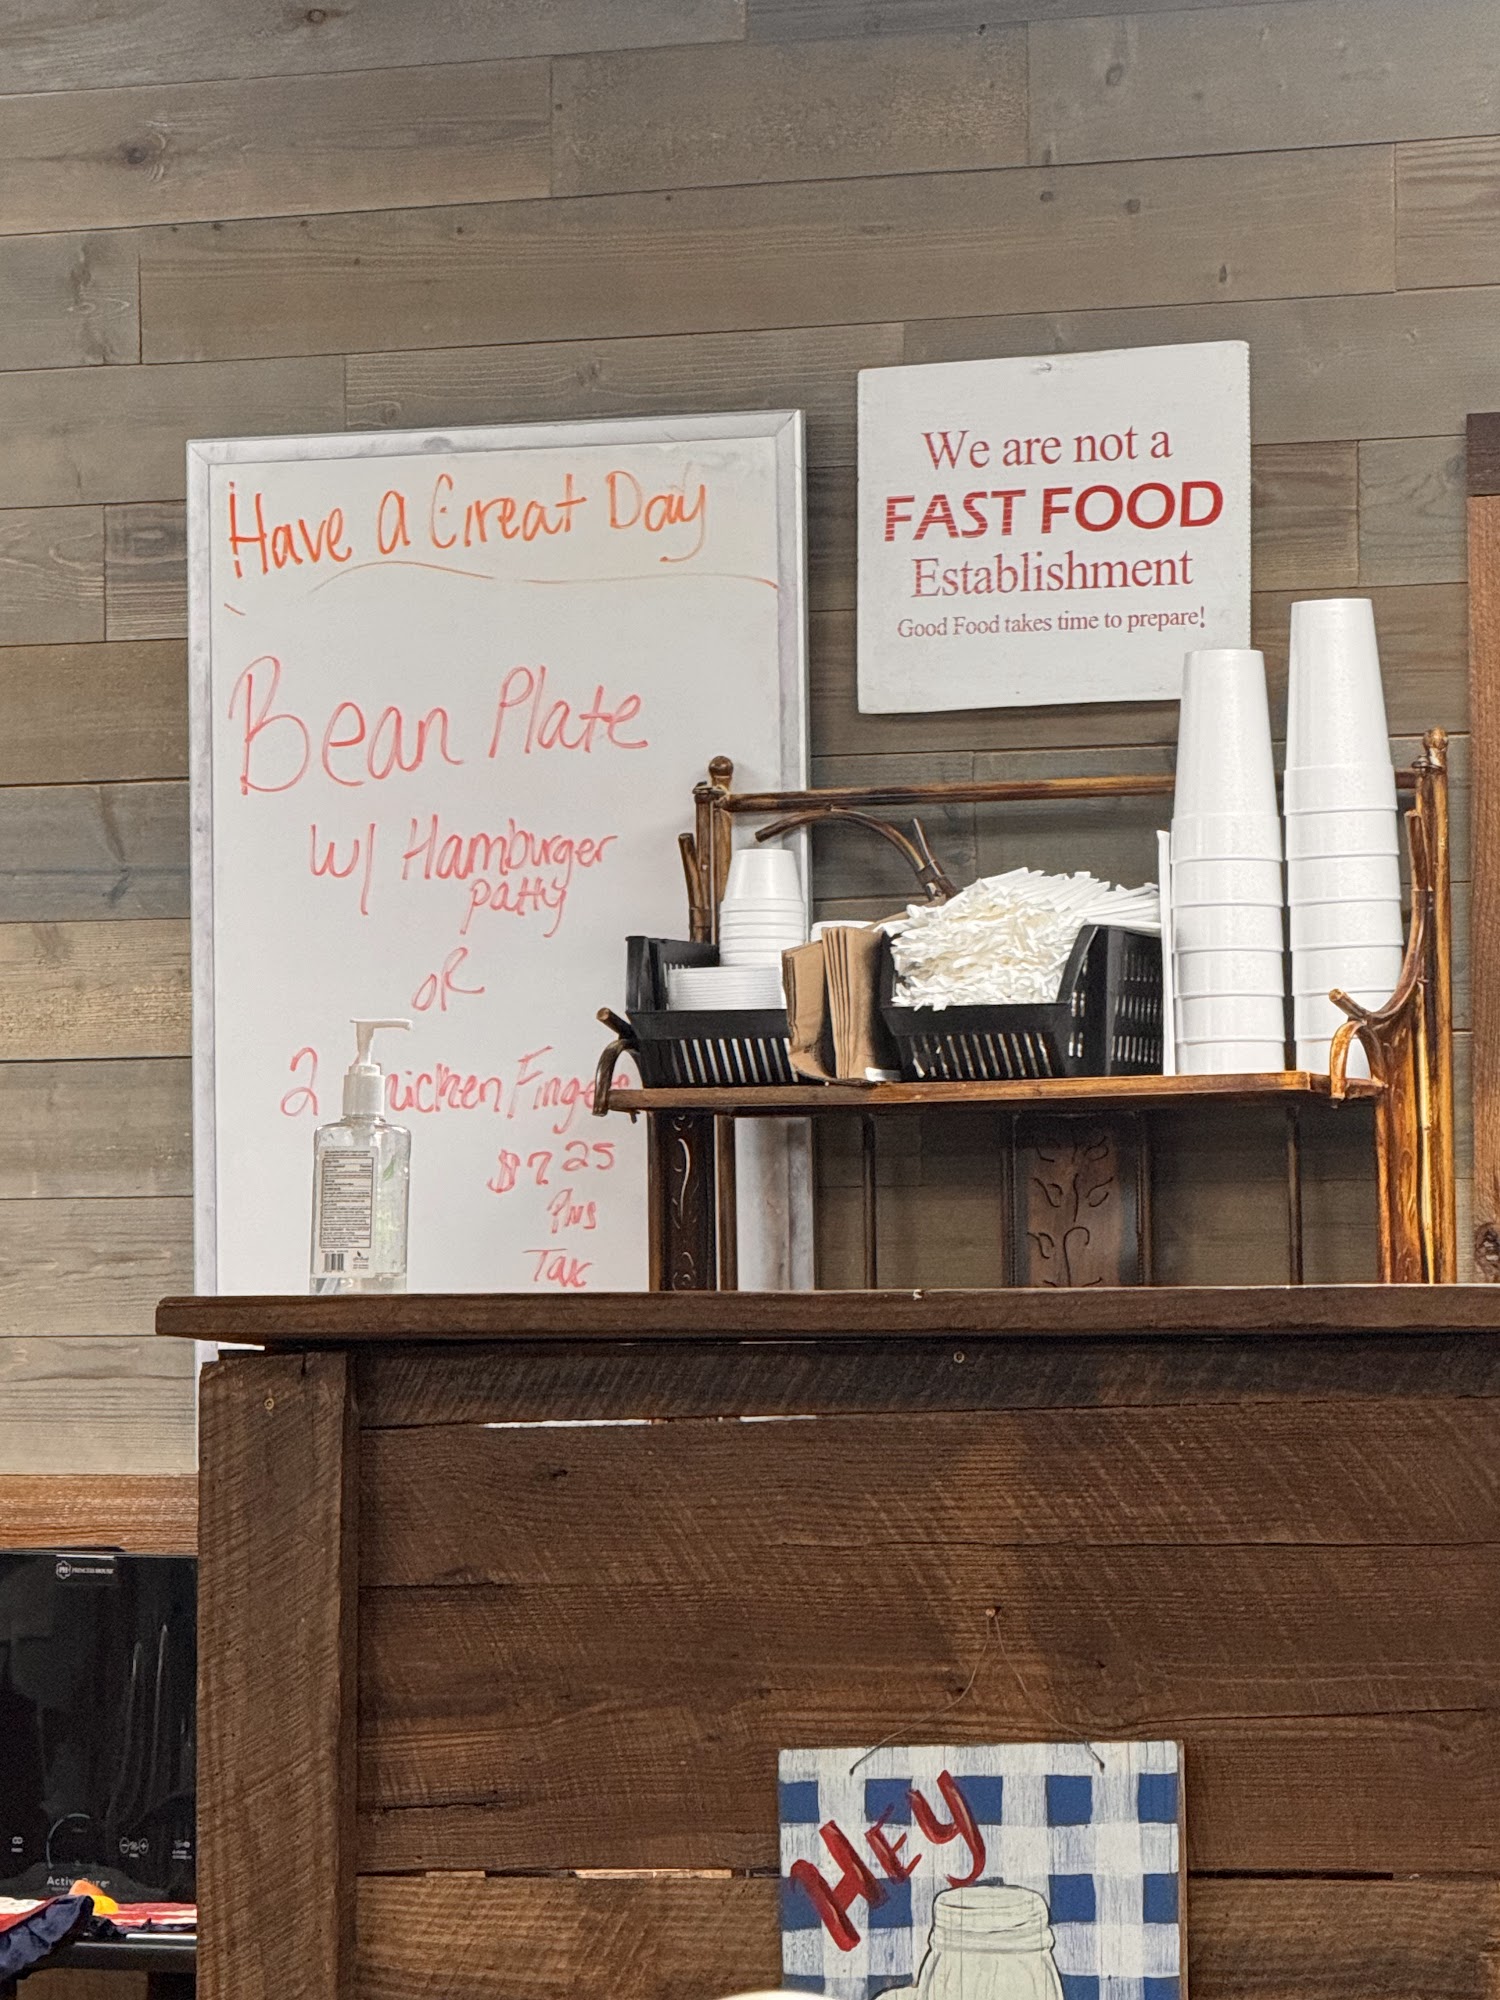 Have A Great Day
Bean Plate
W/ Hamburger
patty
OR
2 Chicken Fingers
$7.25
Plus
Tax
We are not a
FAST FOOD
Establishment
Good Food takes time to prepare!
PRINCESS HOUSE
HEY